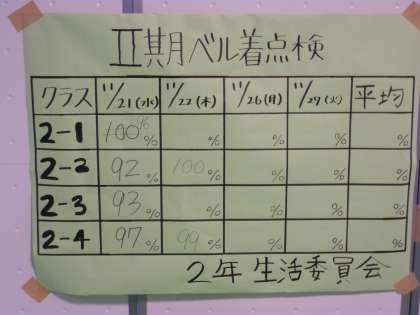 Ⅱ期ベル着点検
クラス 11/21(水) 11/22(木) 11/26(月) 11/27(火) 平均
2-1 100% % % % % %
2-2 92% 100% % % %
2-3 93% % % % %
2-4 97% 99% % % %
2年 生活委員会